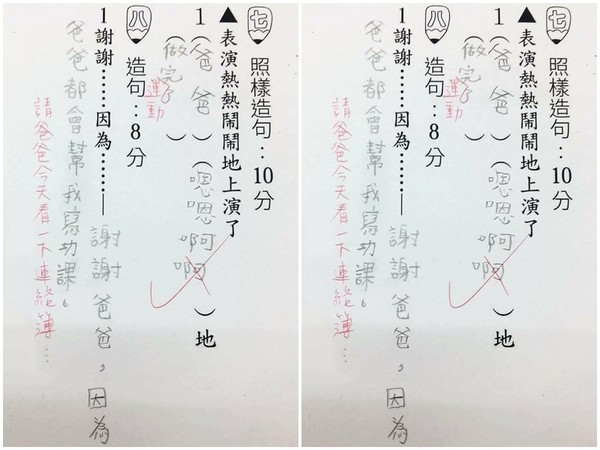 七 照樣造句：10分
▲表演熱熱鬧鬧地上演了
1（爸爸）（嗯嗯啊啊）地
（做完了）
運動
八 造句：8分
1謝謝……因為……
謝謝爸爸，因為
爸爸都會幫我寫功課。
請爸爸今天看一下連絡簿…
七 照樣造句：10分
▲表演熱熱鬧鬧地上演了
1（爸爸）（嗯嗯啊啊）地
（做完了）
運動
八 造句：8分
1謝謝……因為……
謝謝爸爸，因為
爸爸都會幫我寫功課。
請爸爸今天看一下連絡簿…